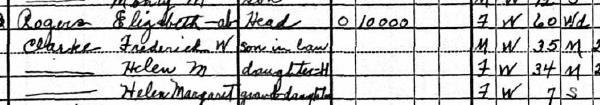 Rogers Elizabeth Head O 10000 F W 60 Wd
Clarke Frederick W son in law M W 35 M 2
—— Helen M daughter-H F W 34 M 2
—— Helen Margaret grand daughter F W 7 S